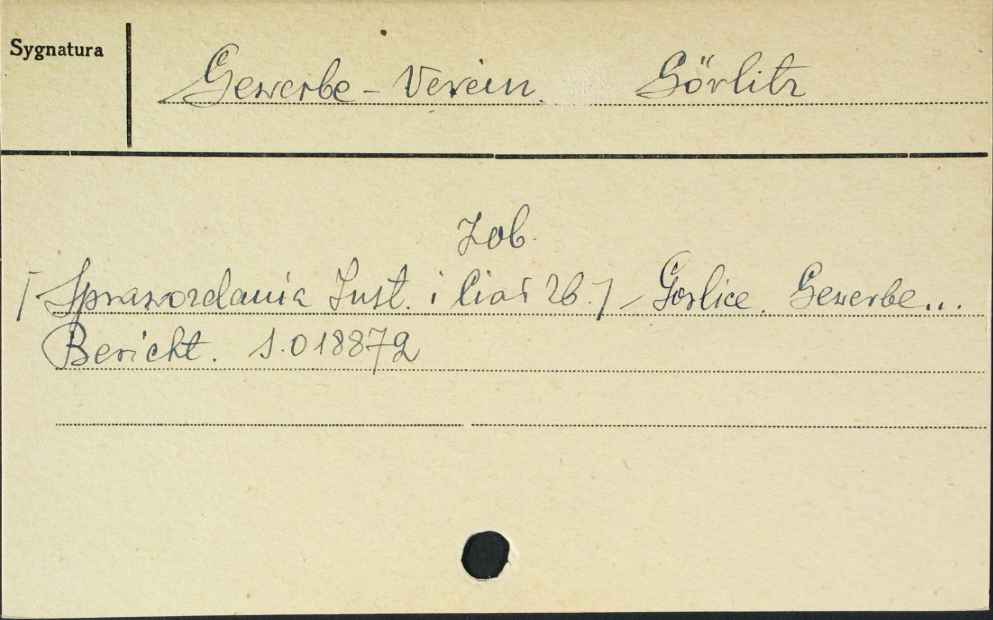 Sygnatura
Gewerbe-Verein. Görlitz
Zob.
[Sprawozdania Inst. i Zb.] - Gorlice. Gewerbe...
Bericht. 1.018872